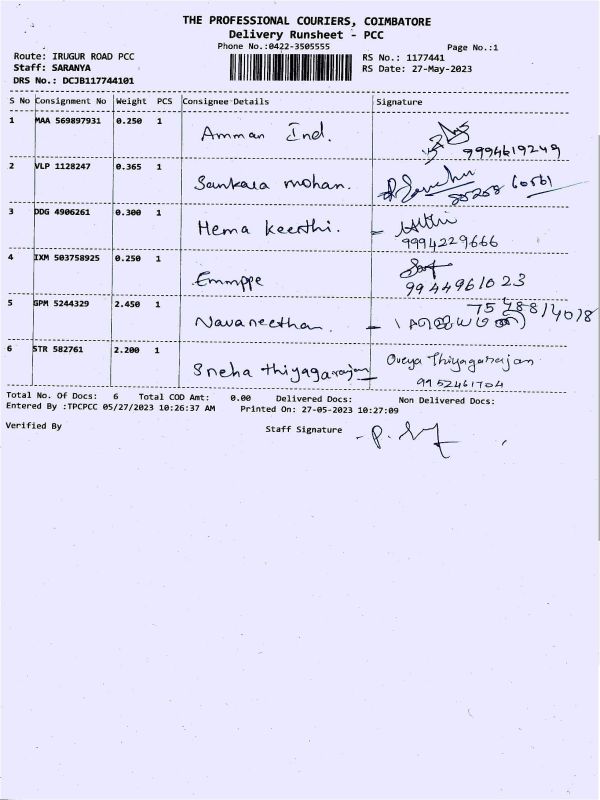 THE PROFESSIONAL COURIERS, COIMBATORE
Delivery Runsheet - PCC
Phone No.:0422-3505555
Page No.:1
Route: IRUGUR ROAD PCC
RS No.: 1177441
Staff: SARANYA
RS Date: 27-May-2023
DRS No.: DCJB117744101
S No Consignment No Weight PCS Consignee Details Signature
1 MAA 569897931 0.250 1 Amman Ind.
9994619249
2 VLP 1128247 0.365 1 Sankara mohan.
80208 60561
3 DDG 4906261 0.300 1 Hema keerthi.
9994229666
4 IXM 503758925 0.250 1 Emmppe
9944961023
5 GPM 5244329 2.450 1 Navaneethan.
7548814018
6 STR 582761 2.200 1 Sneha thiyagarajan
Oveya Thiyagarajan
9952461704
Total No. Of Docs: 6 Total COD Amt: 0.00 Delivered Docs: Non Delivered Docs:
Entered By :TPCPCC 05/27/2023 10:26:37 AM Printed On: 27-05-2023 10:27:09
Verified By
Staff Signature